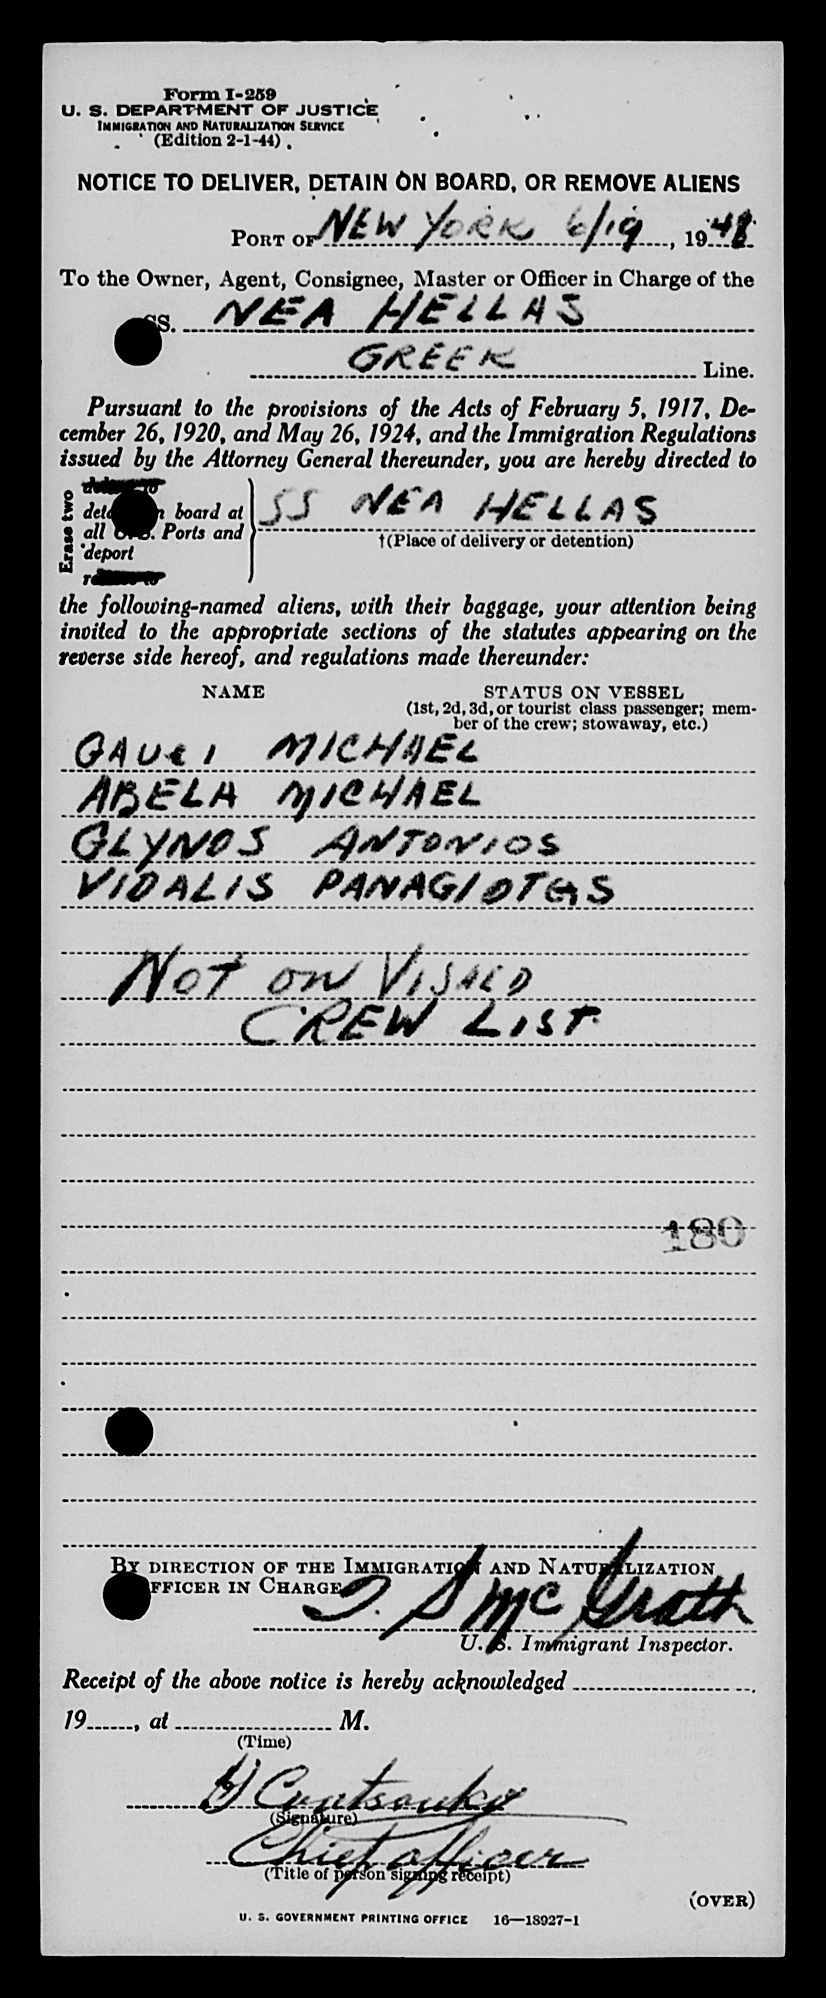 Form I-259
U. S. DEPARTMENT OF JUSTICE
IMMIGRATION AND NATURALIZATION SERVICE
(Edition 2-1-44)
NOTICE TO DELIVER, DETAIN ON BOARD, OR REMOVE ALIENS
PORT OF NEW YORK 6/19, 1948
To the Owner, Agent, Consignee, Master or Officer in Charge of the
SS. NEA HELLAS
GREEK Line.
Pursuant to the provisions of the Acts of February 5, 1917, De-
cember 26, 1920, and May 26, 1924, and the Immigration Regulations
issued by the Attorney General thereunder, you are hereby directed to
Erase two
board at
all Ports and
deport
SS NEA HELLAS
†(Place of delivery or detention)
the following-named aliens, with their baggage, your attention being
invited to the appropriate sections of the statutes appearing on the
reverse side hereof, and regulations made thereunder:
NAME STATUS ON VESSEL
(1st, 2d, 3d, or tourist class passenger; mem-
ber of the crew; stowaway, etc.)
GAUCI MICHAEL
ABELA MICHAEL
GLYNOS ANTONIOS
VIDALIS PANAGIOTIS
NOT ON VISAED
CREW LIST
180
BY DIRECTION OF THE IMMIGRATION AND NATURALIZATION
OFFICER IN CHARGE
McGrath
U. S. Immigrant Inspector.
Receipt of the above notice is hereby acknowledged
19, at M.
(Time)
(Signature)
Chief officer
(Title of person signing receipt)
(OVER)
U. S. GOVERNMENT PRINTING OFFICE 16—18927-1